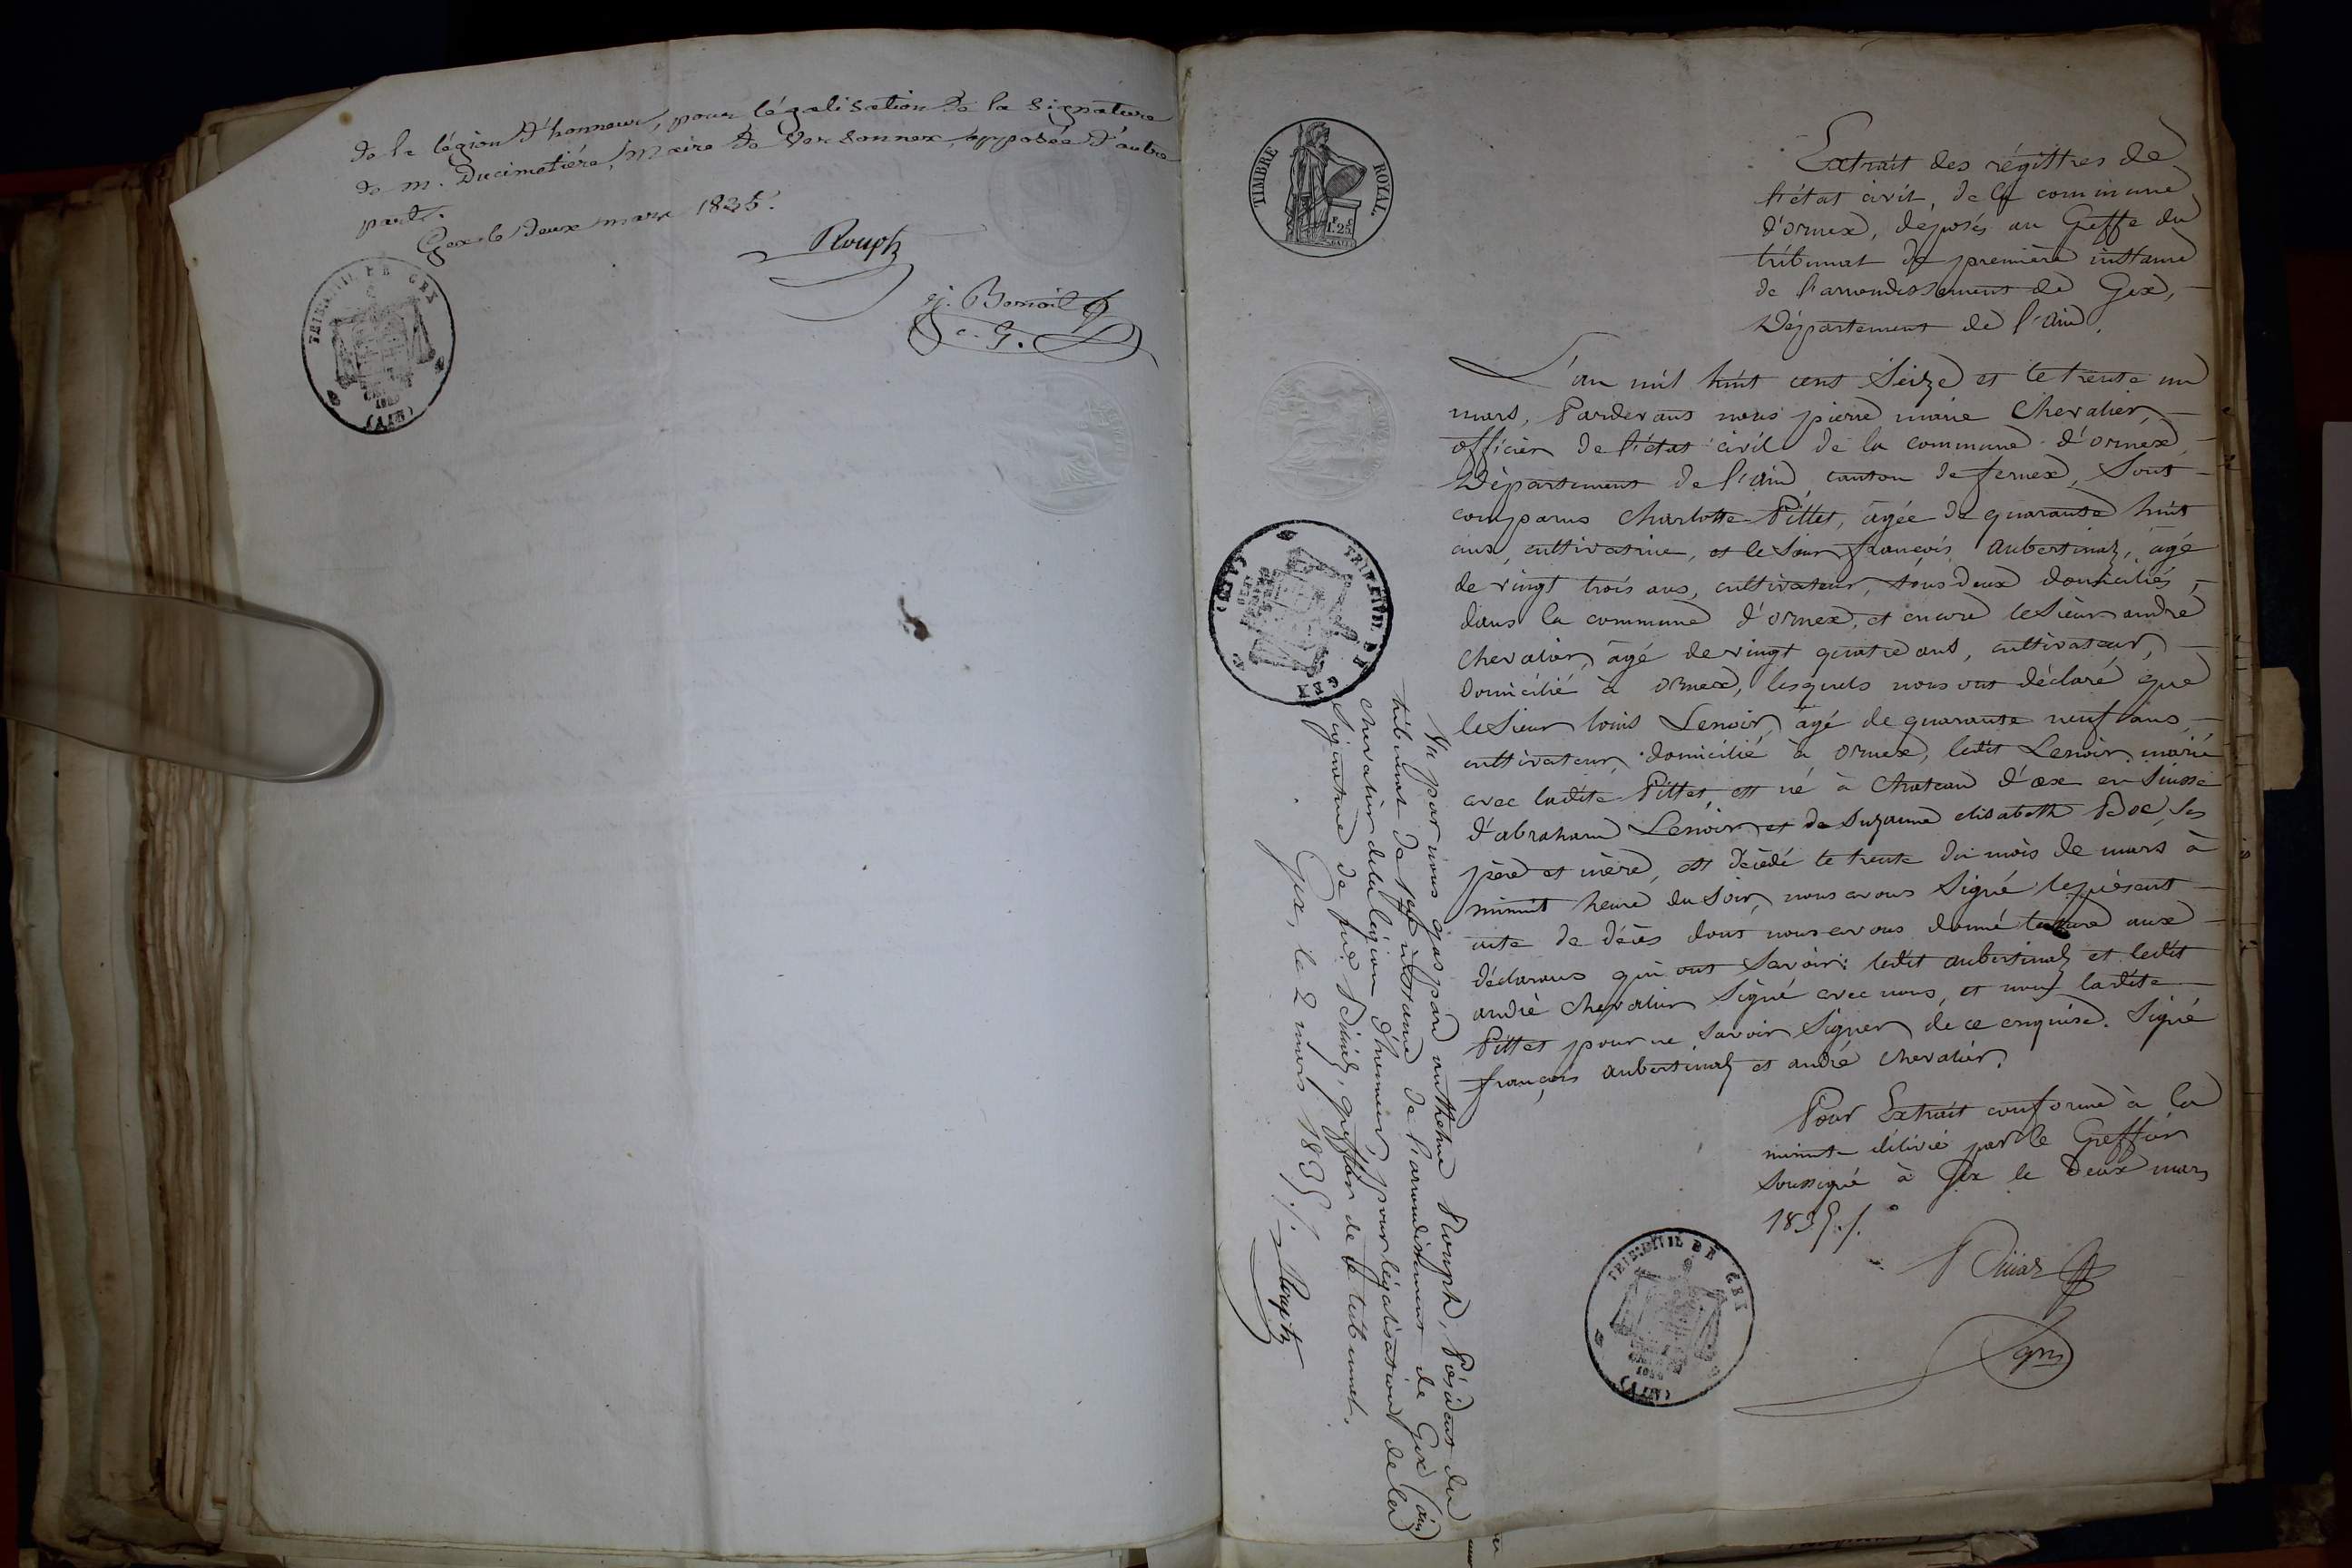 de la légion d'honneur, pour légalisation de la signature
de m. Ducimetière, Maire de Versonnex, apposée d'autre
part.
Gex le deux mars 1835.
Rouph
j. Benoit
c. G.
TRIB. CIVIL DE GEX
(AIN)
TIMBRE ROYAL
1.25
Extrait des régistres de
l'état civil, de la commune
d'ornex, déposés au Greffe du
tribunal de première instance
de l'arrondissement de Gex,
Département de l'ain.
L'an mil huit cent Seize et le trente un
mars, Pardevant nous pierre marie Chevalier,
officier de l'état civil de la commune d'ornex,
Département de l'ain, canton de fernex, Sont
comparus Charlotte Pittet, âgée de quarante huit
ans, cultivatrice, et le Sieur françois Aubertinaz, âgé
de vingt trois ans, cultivateur, tous deux domiciliés,
dans la commune d'ornex, et encore le Sieur andré
Chevalier, âgé de vingt quatre ans, cultivateur,
Domicilié à ornex, lesquels nous ont déclaré que
le Sieur louis Lenoir, âgé de quarante neuf ans,
cultivateur, domicilié à ornex, ledit Lenoir, marié
avec ladite Pittet, est né à Chateau d'œx en Suisse
d'abraham Lenoir et de Suzanne elisabeth ses
père et mère, est décédé le trente du mois de mars à
minuit heure du Soir, nous avons Signé le présent
acte de décès dont nous avons donné lecture aux
déclarans qui ont Savoir: ledit aubertinaz et ledit
andré Chevalier Signé avec nous, et non ladite
Pittet pour ne Savoir Signer de ce enquise. Signé
françois aubertinaz et andré chevalier.
Pour Extrait conforme à la
minute délivré par le Greffier
Soussigné à Gex le deux mars
1835./.
TRIB. CIVIL DE GEX
(AIN)
TRIB. CIVIL DE GEX
(AIN)
Vu par nous gaspard anthelme Rouph, Président du
tribunal de 1ere instance de l'arrondissement de Gex (ain)
chevalier de la légion d'honneur, pour légalisation de la
Signature de greffier de ce tribunal.
Gex, le 2 mars 1835./.
Rouph